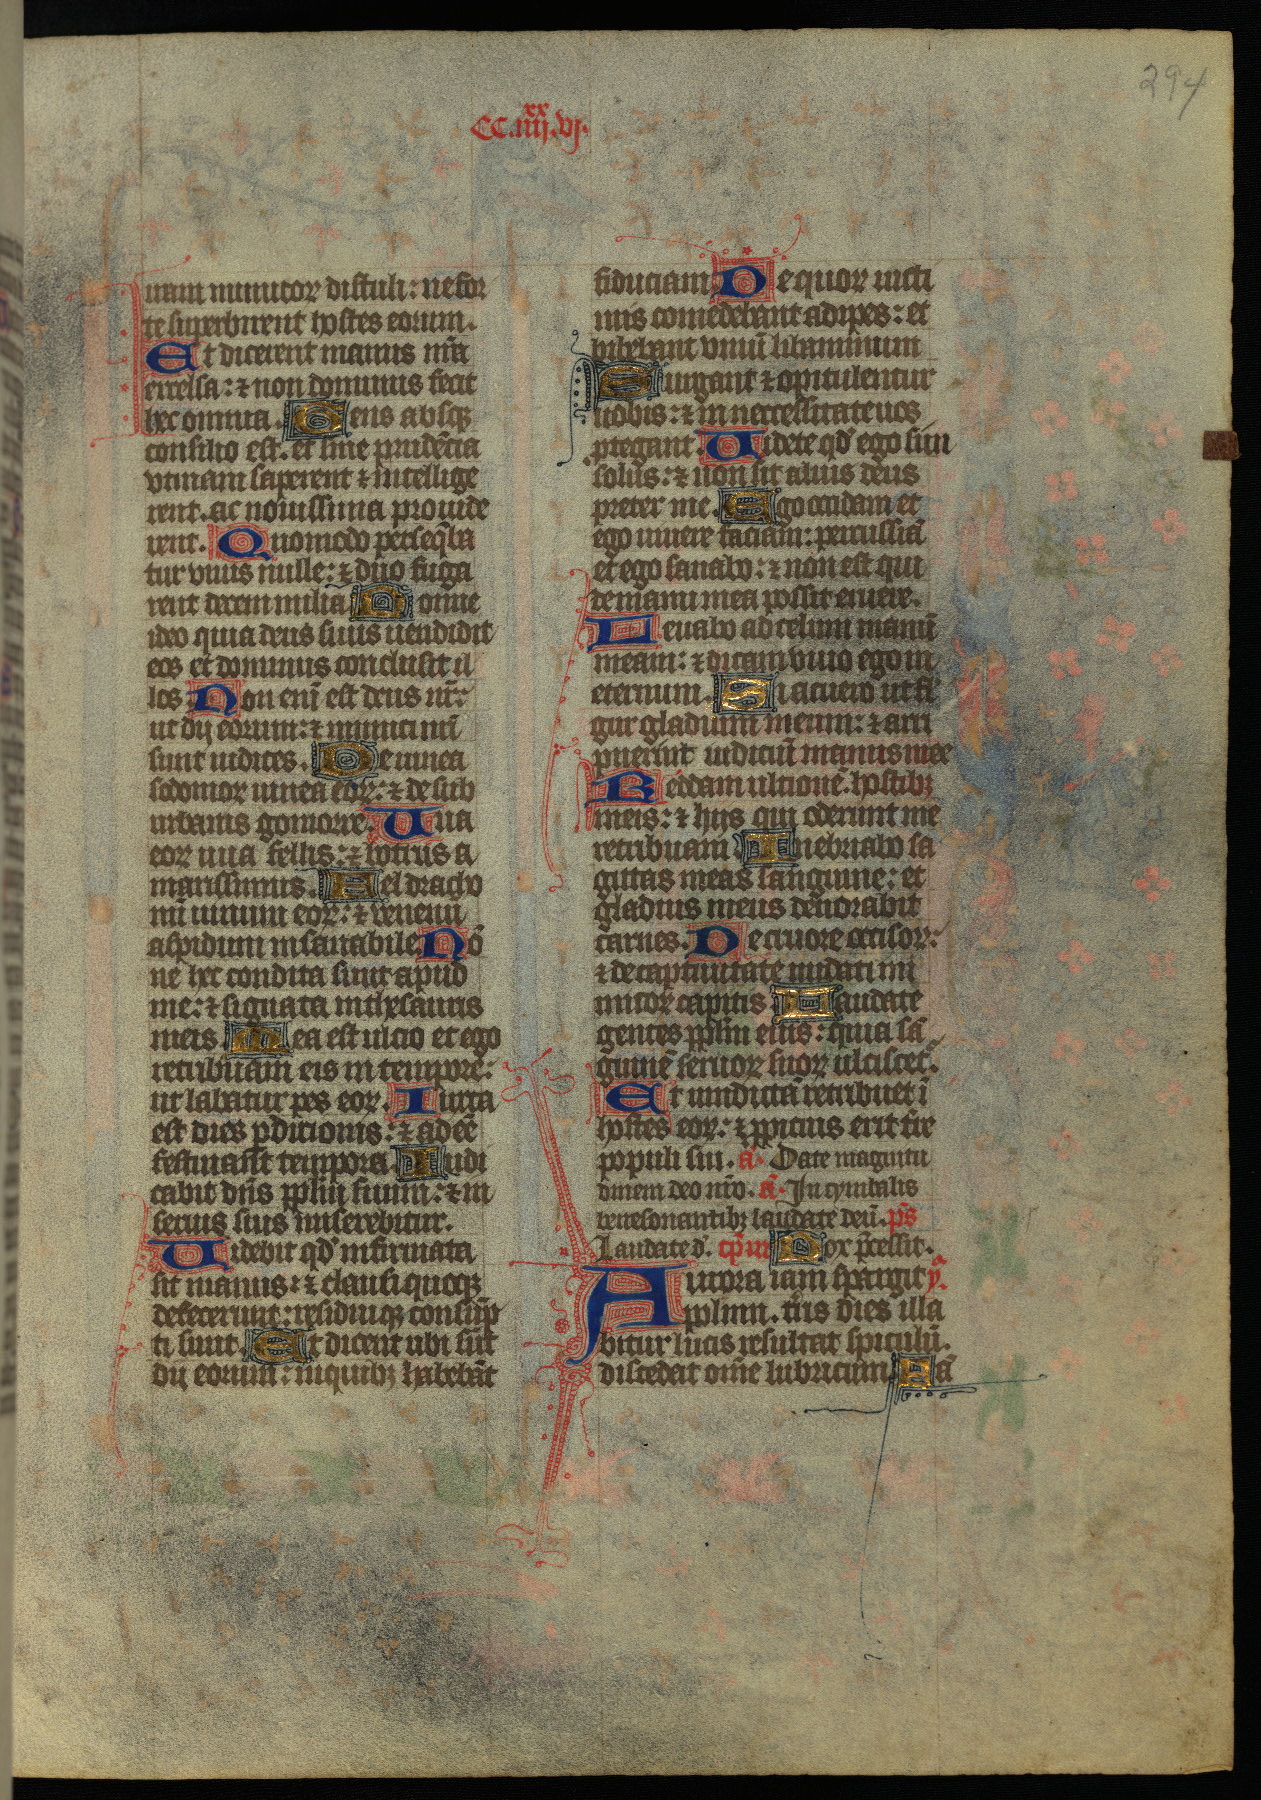 294
CC.iiij.vj.
xx
iram inimicor distuli: ne for
te superbirent hostes eorum.
Et dicerent manus nr̃a
excelsa: ⁊ non dominus fecit
hec omnia. Gens absqꝫ
consilio est. et sine prudẽcia
vtinam saperent ⁊ intellige
rent. ac nouissima prouide
rent. Quomodo perseq̃ba
tur vnus mille: ⁊ duo fuga
rent decem milia Nonne
ideo quia deus suus uendidit
eos et dominus conclusit il
los Non enĩ est deus nr̃:
ut dij eorum: ⁊ inimici nr̃i
sunt iudices. De uinea
sodomor uinea eoꝝ: ⁊ de sub
urbanis gomorre. Uua
eor uua fellis: ⁊ botrus a
marissimus. Fel dracho
nũ uinum eoꝝ: ⁊ venenũ
aspidum insanabile Nõ
ne hec condita sunt apud
me: ⁊ signata in thesauris
meis. Mea est ulcio et ego
retribuam eis in tempore:
ut labatur pes eoꝝ. Iuxta
est dies ꝑditionis: ⁊ adeẽ
festinant tempora Iudi
cabit dñs pplm̃ suum: ⁊ in
seruis suis miserebitur.
Uidebit qd̾ infirmata
sit manus: ⁊ clausi quoqꝫ
defecerunt: residuiqꝫ consũp
ti sunt. Et dicent ubi sũt
dij eorum: in quibꝫ habebãt
fiduciam De quor uicti
mis comedebant adipes: et
bibebant vinũ libaminum
Surgant ⁊ opitulentur
uobis: ⁊ in neccessitate uos
ꝓtegant. Uidete qd̾ ego sim
solus: ⁊ non sit alius deus
preter me. Ego occidam et
ego uiuere faciam: percutiã
et ego sanabo: ⁊ non est qui
de manu mea possit eruere.
Leuabo ad celum manũ
meam: ⁊ dicam viuo ego in
eternum. Si acuero ut fũ
gur gladium meum: ⁊ arri
puerint iudiciũ manus mee
Reddam ultionẽ hostibꝫ
meis: ⁊ hijs qui oderunt me
retribuam Inebriabo sa
gittas meas sanguine: et
gladius meus deuorabit
carnes. De cruore occisoꝝ:
⁊ de captiuitate nudati ini
micoꝝ capitis Laudate
gentes pplm̃ eius: quia sã
guinẽ seruoꝝ suoꝝ ulciscet᷑.
Et uindictã retribuet ĩ
hostes eoꝝ: ⁊ ꝓpicius erit tr̃e
populi sui. a᷑. Date magnitu
dinem deo nr̃o. a᷑. In cymbalis
benesonantibꝫ laudate deũ. p̃s
Laudate d̾. cp̃m Nox p̃cessit.
Aurora iam spargit ym̃
polum. t̃ris dies illa
bitur lucis resultat spiculũ.
discedat om̃e lubricum Fã